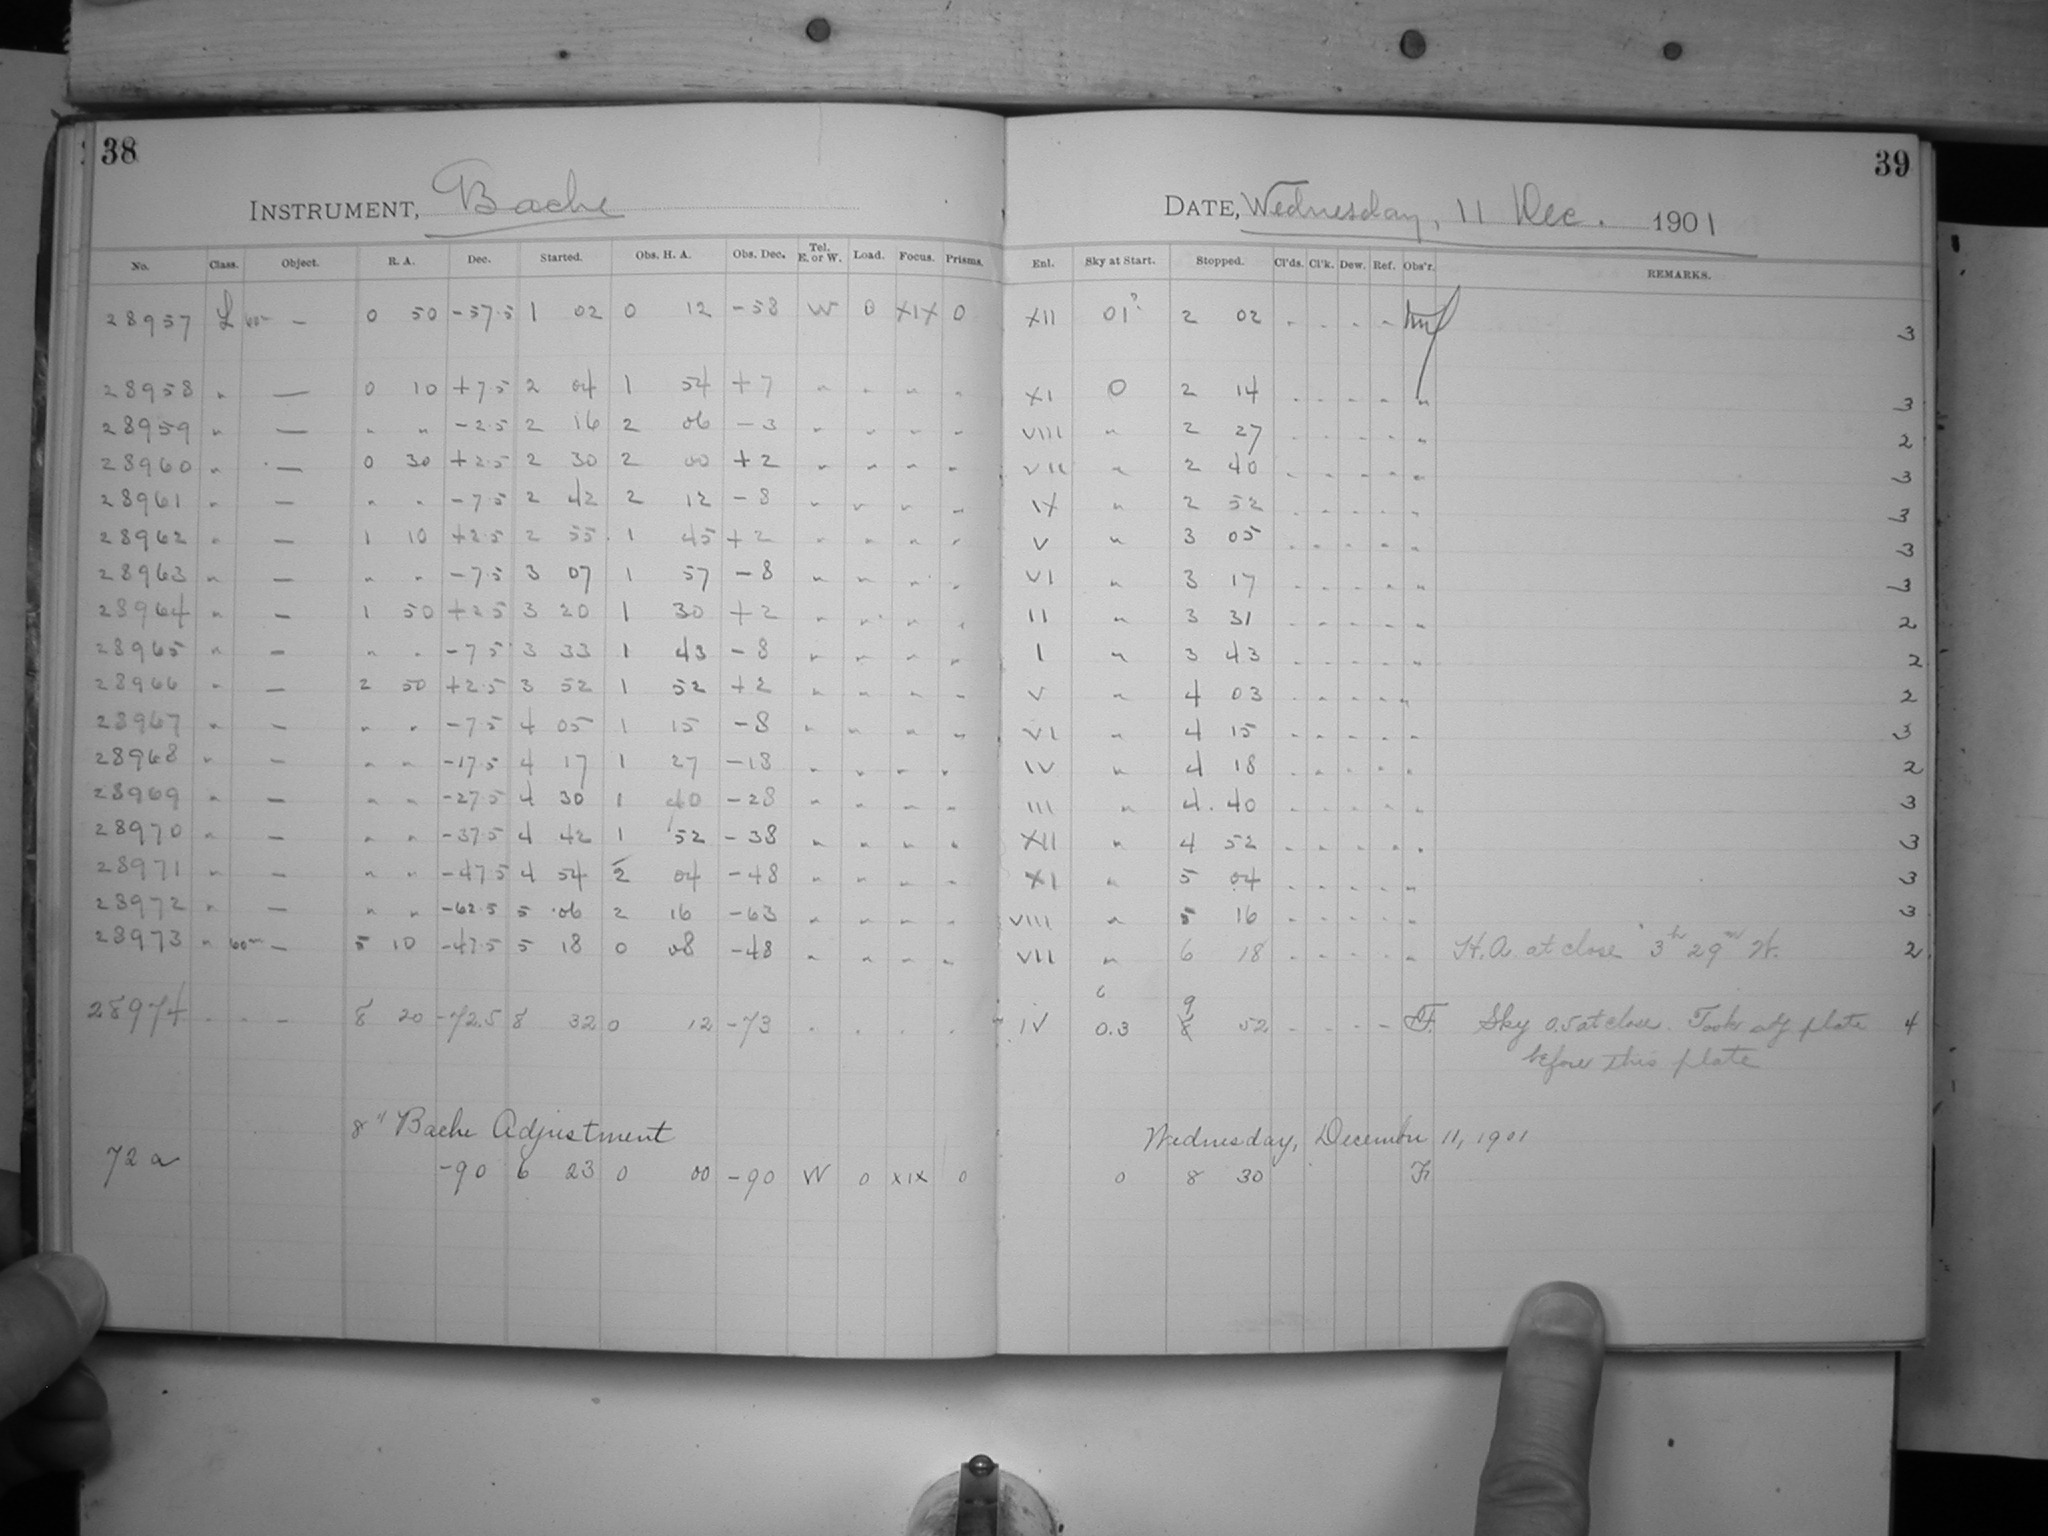 38
39
INSTRUMENT, Bache
DATE, Wednesday, 11 Dec. 1901
No. Class. Object. R. A. Dec. Started. Obs. H. A. Obs. Dec. Tel. E. or W. Load. Focus. Prisms. Enl. Sky at Start. Stopped. Cl'ds. Cl'k. Dew. Ref. Obs'r. REMARKS.
28957 L 60m – 0 50 -57.5 1 02 0 12 -58 W 0 XIX 0 XII 01? 2 02 " " " " 3
28958 " — 0 10 +7.5 2 04 1 54 +7 " " " " XI 0 2 14 " " " " " 3
28959 " — " " -2.5 2 16 2 06 -3 " " " " VIII " 2 27 " " " " " 2
28960 " — 0 30 +2.5 2 30 2 00 +2 " " " " VII " 2 40 " " " " " 3
28961 " — " " -7.5 2 42 2 12 -8 " " " " IX " 2 52 " " " " " 3
28962 " — 1 10 +2.5 2 55 1 45 +2 " " " " V " 3 05 " " " " " 3
28963 " — " " -7.5 3 07 1 57 -8 " " " " VI " 3 17 " " " " " 3
28964 " — 1 50 +2.5 3 20 1 30 +2 " " " " II " 3 31 " " " " " 2
28965 " — " " -7.5 3 33 1 43 -8 " " " " I " 3 43 " " " " " 2
28966 " — 2 50 +2.5 3 52 1 52 +2 " " " " V " 4 03 " " " " " 2
28967 " — " " -7.5 4 05 1 15 -8 " " " " VI " 4 15 " " " " " 3
28968 " — " " -17.5 4 17 1 27 -18 " " " " IV " 4 18 " " " " " 2
28969 " — " " -27.5 4 30 1 40 -28 " " " " III " 4.40 " " " " " 3
28970 " — " " -37.5 4 42 1 52 -38 " " " " XII " 4 52 " " " " " 3
28971 " — " " -47.5 4 54 2 04 -48 " " " " XI " 5 04 " " " " " 3
28972 " — " " -62.5 5 06 2 16 -63 " " " " VIII " 5 16 " " " " " 3
28973 " 60m — 5 10 -47.5 5 18 0 08 -48 " " " " VII " 6 18 " " " " " H.A. at close 3h 29m W. 2
28974 " " – 8 20 -72.5 8 32 0 12 -73 " " " " IV 0.3 9 52 " " " " F. Sky 0.5 at close. Took adj plate 4
before this plate
8" Bache Adjustment Wednesday, December 11, 1901
72 a -90 6 23 0 00 -90 W 0 XIX 0 0 8 30 Fr